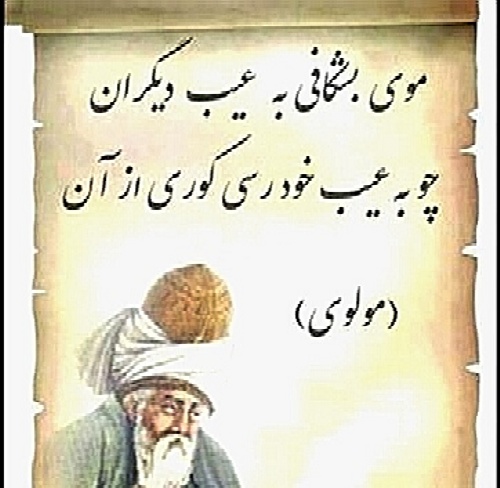 موی بشکافی به عیب دیگران
چو به عیب خود رسی کوری از آن
(مولوی)